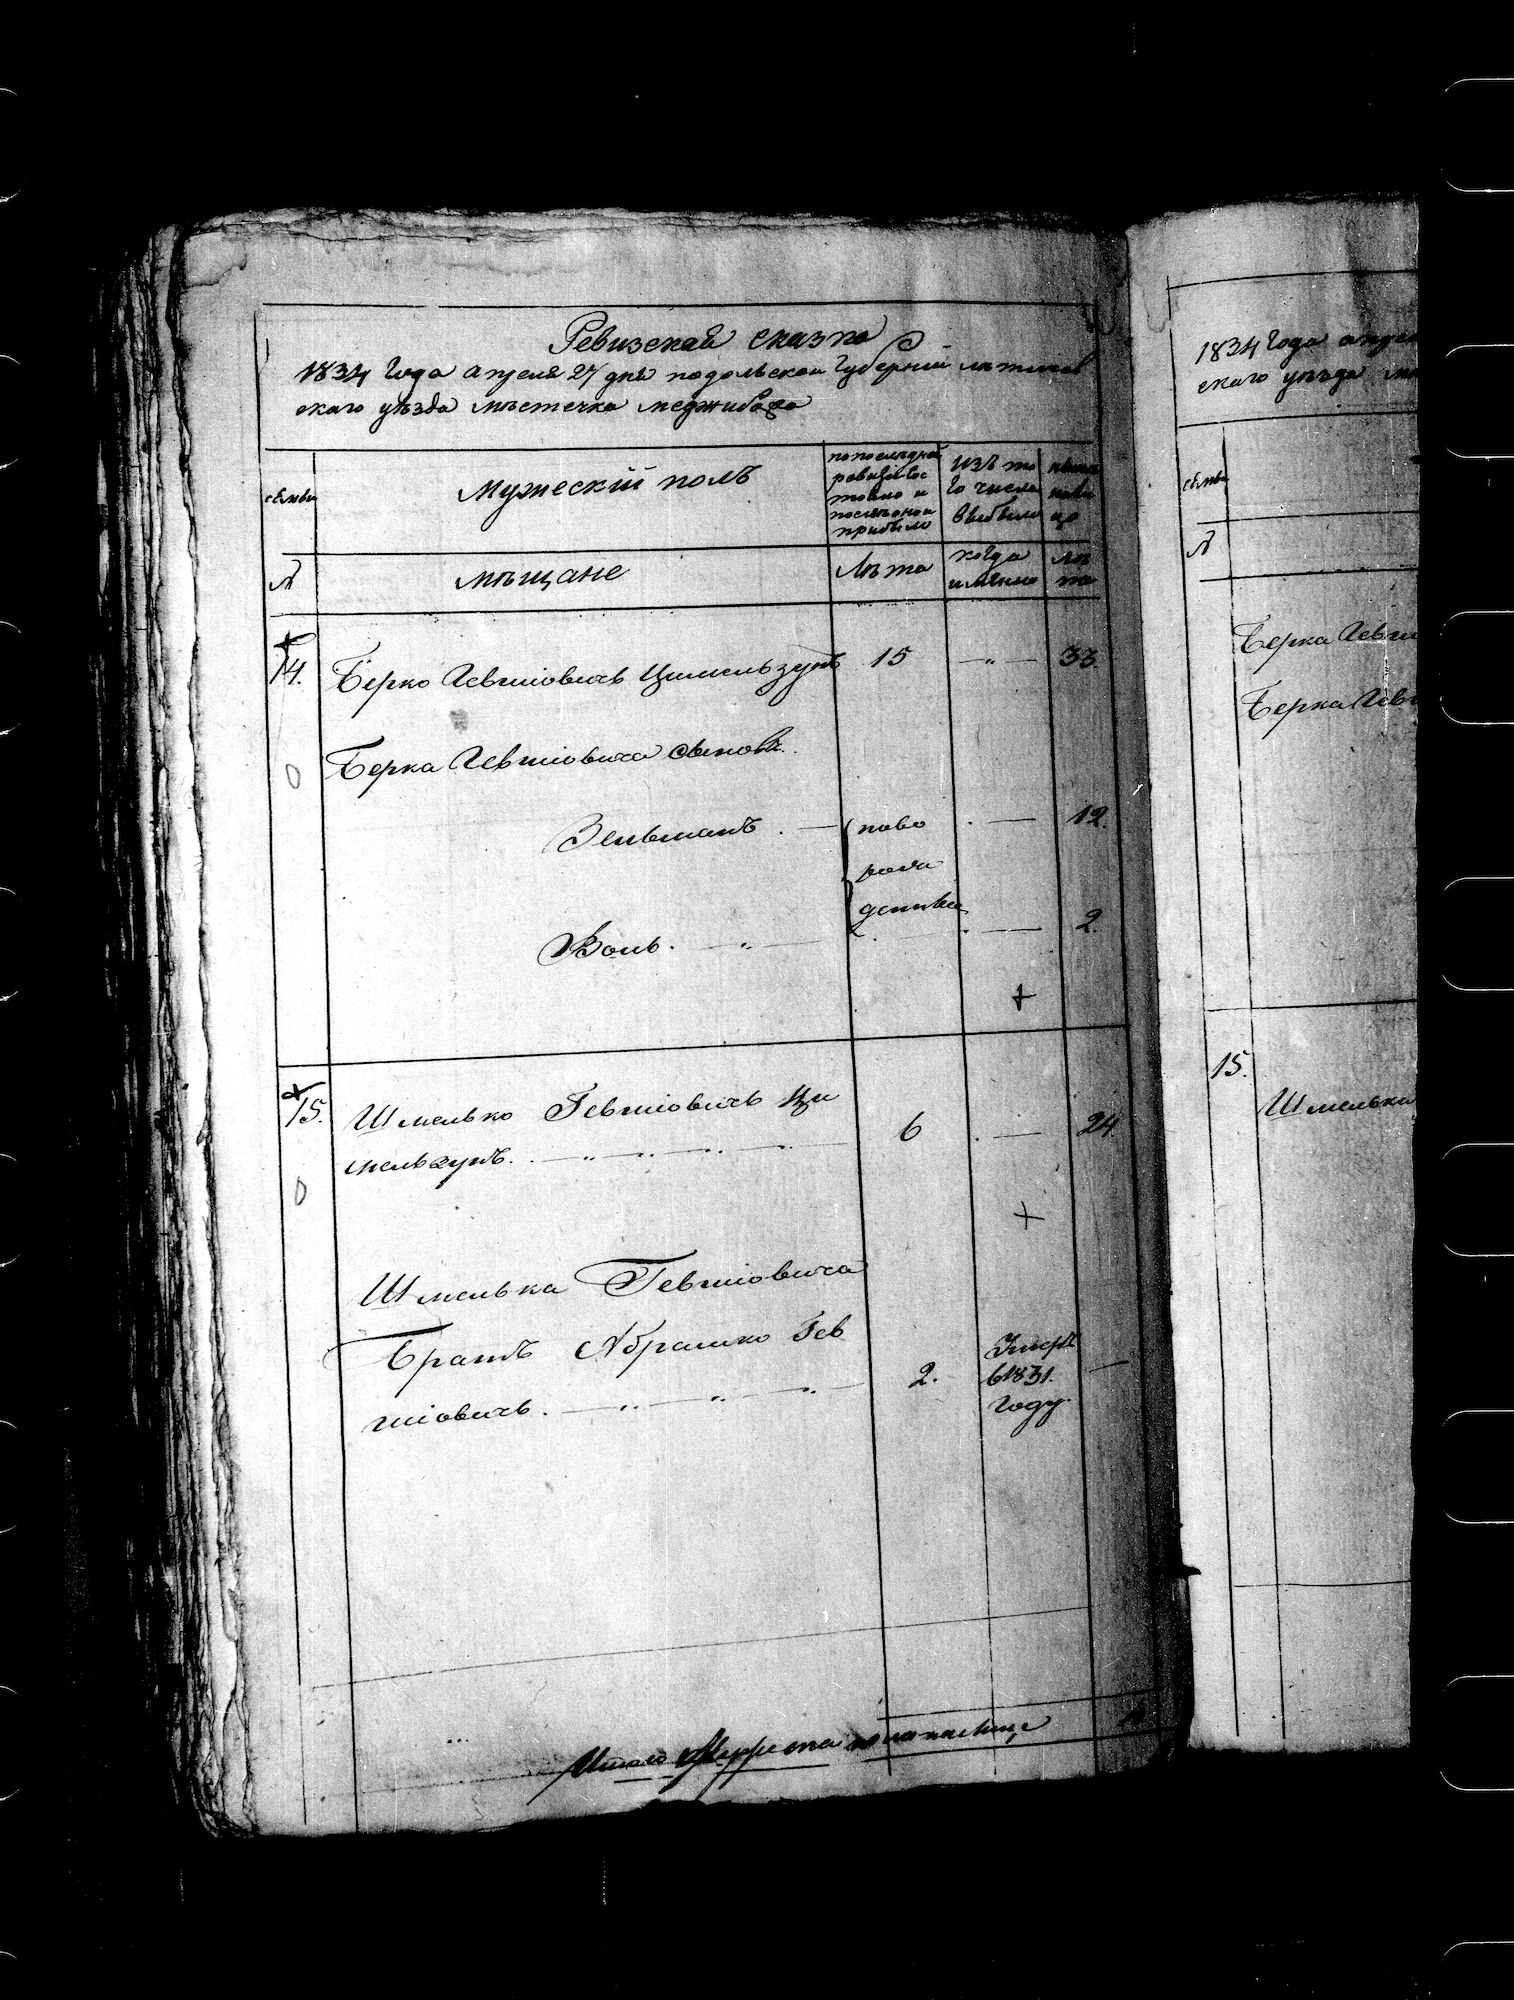 Ревизская сказка
1834 Года апреля 27 дня подольской Губернии лятичев
скаго уѣзда мѣстечка меджибожа
семьи
Мужескій полъ
по последней
ревизіи сос
тояло и
после оной
прибыло
Изъ то
го числа
выбыло
ныне
на ли
цо
№
мѣщане
Лѣта
когда
имянно
лѣ
та
14.
Берко Гевшіовичъ Цимельзунъ 15 — „ — 33.
Берка Гевшіовича сыновя.
Зельманъ . — ново . — 12.
рож
денные
Воль. — „ — . — 2.
15.
Шмелько Гевшіовичъ Ци
мельзунъ. 6 . — 24.
Шмелька Гевшіовича
Братъ Абрамко Гев
шіовичъ. 2. Умеръ
в 1831.
Году. —
Итого Мужеска пола на лице
1834 Года апрел
скаго уѣзда мѣ
семьи
№
Берка Гевш
Берка Гев
15.
Шмелька